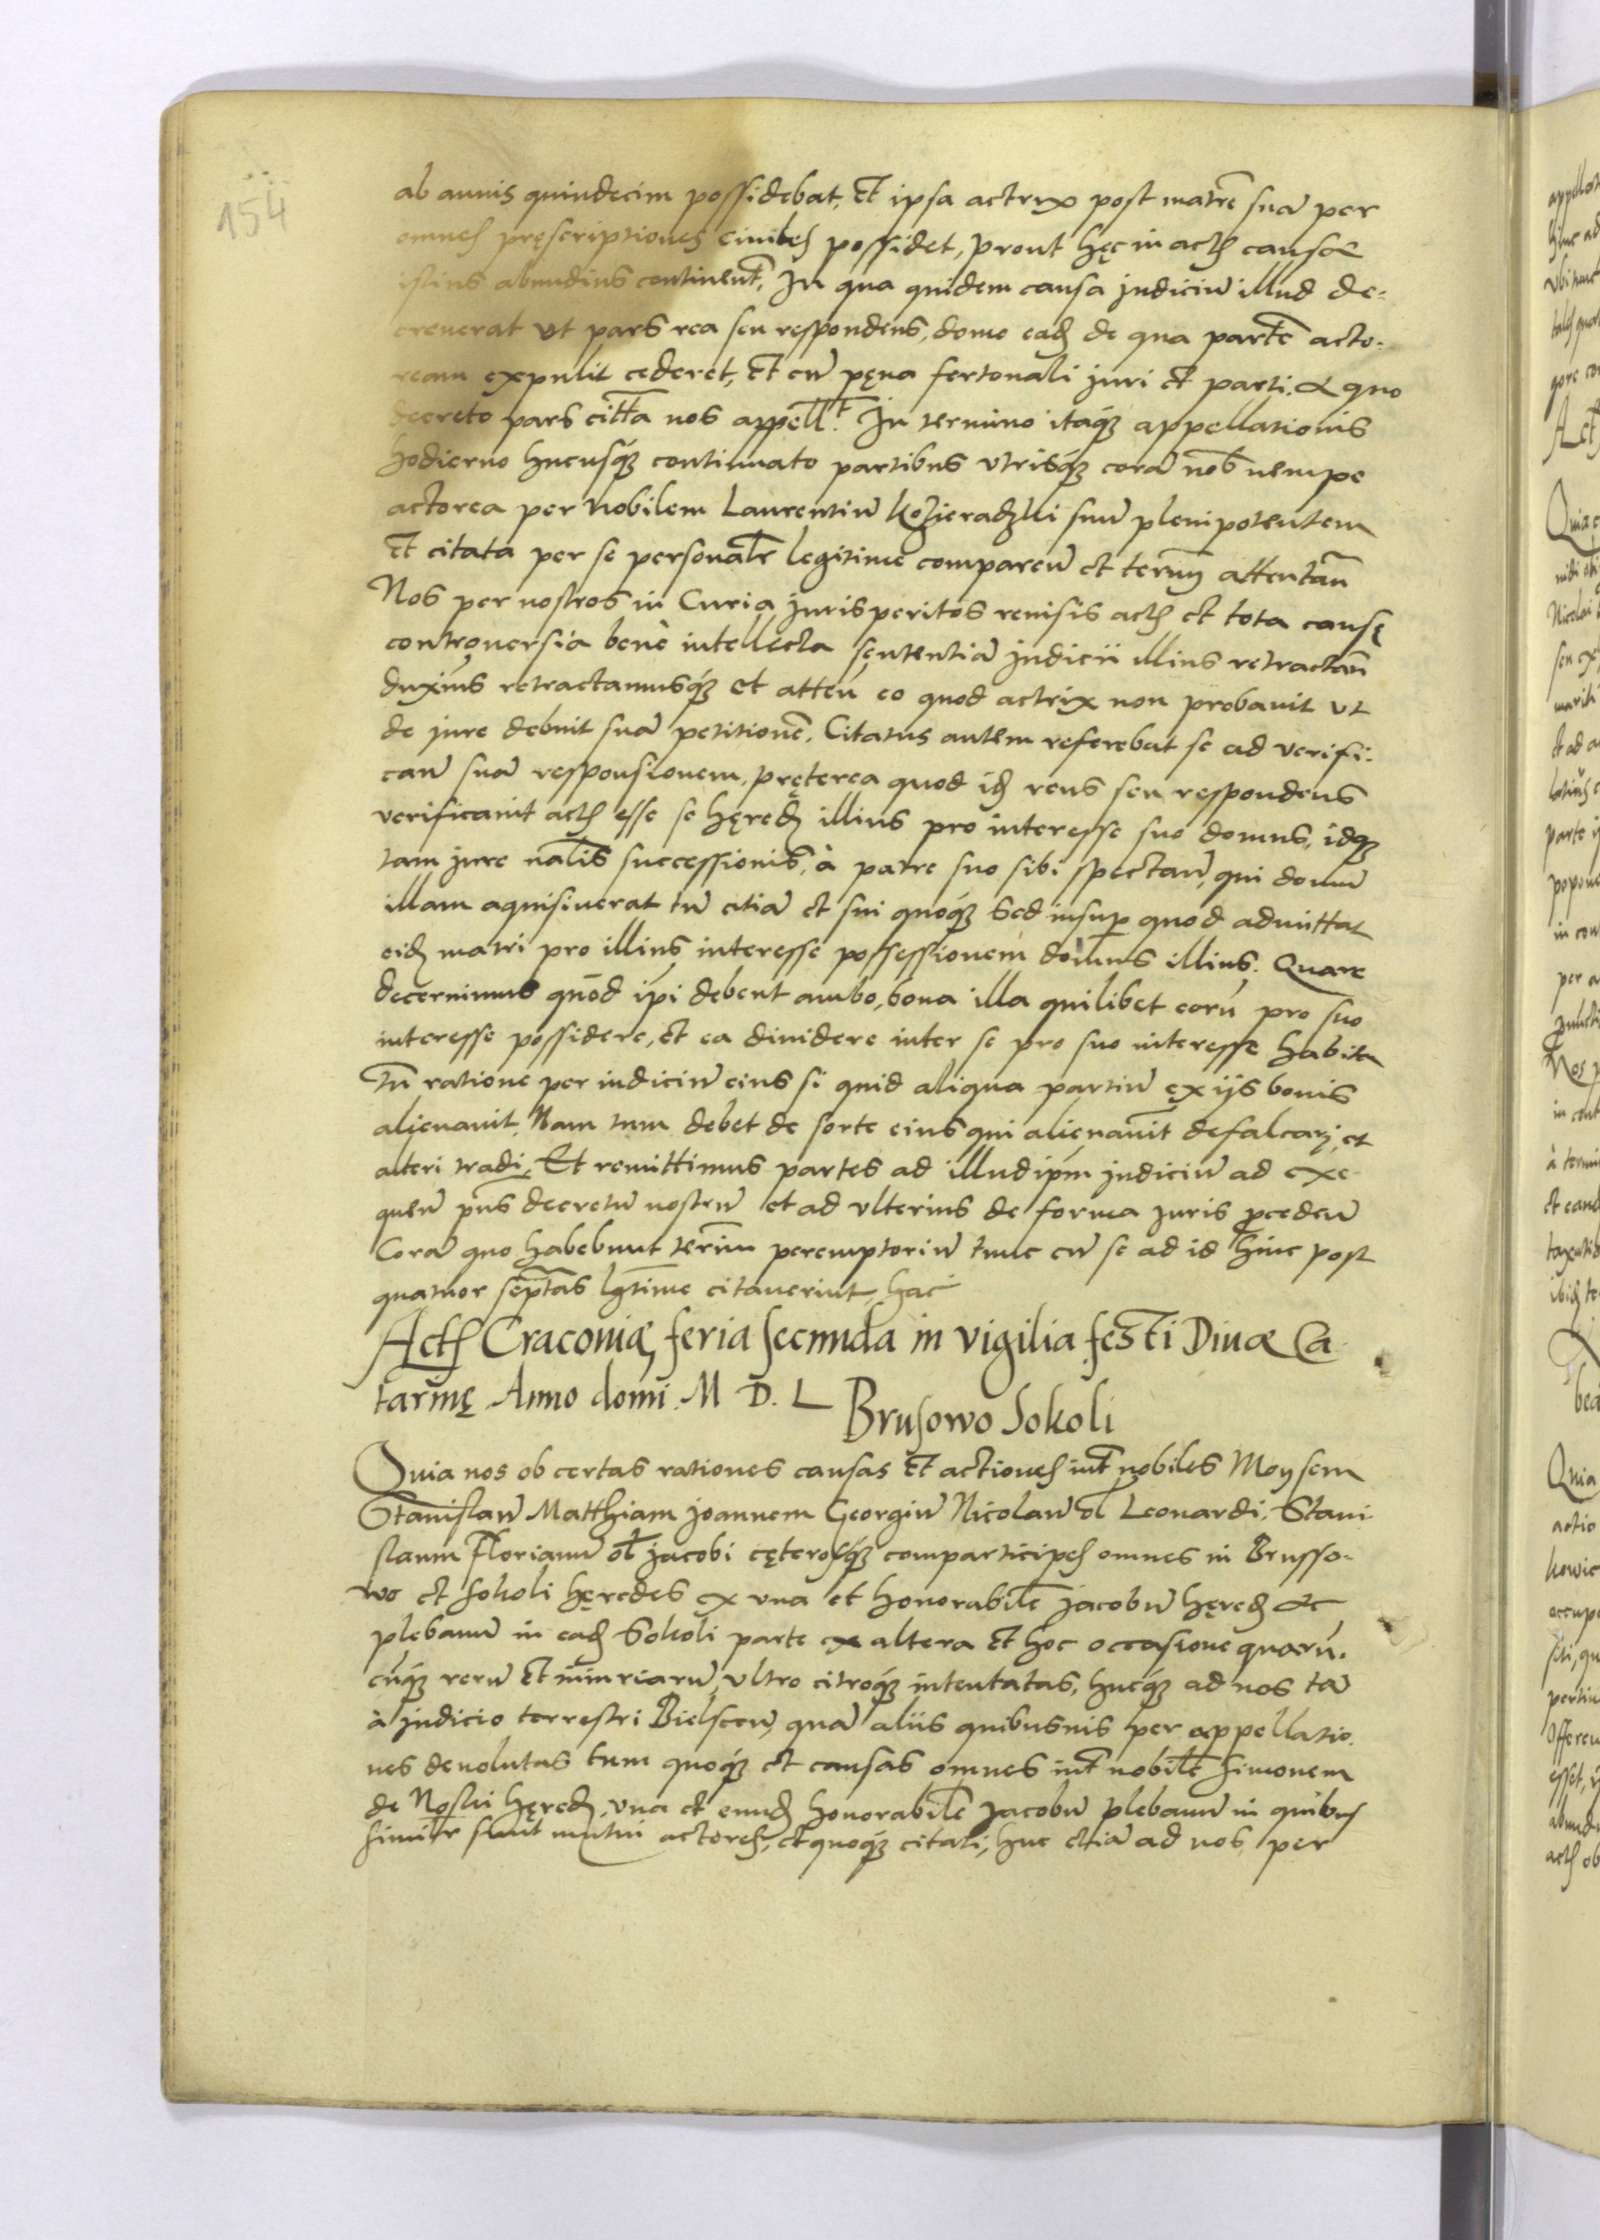 154
ab annis quindecim possidebat, Et ipsa actrix post matrē suā per
omnes pręscriptiones ciuiles possidet, prout hęc in actis causæ
istius abundius continent, In qua quidem causa iudiciū illud de-
creuerat ut pars rea seu respondens, domo eadē de qua partē acto-
ream expulit cederet, Et cū pęna fertonali juri et parti. A quo
decreto pars citta nos appellt. In termino itaq appellationis
hodierno hucusq continuato partibus utrisq corā nob nempe
actorea per Nobilem Laurentiū Kozieradzki suū plenipotentem
Et citata per se personalr legitime comparen et termū attentan
Nos per nostros in Curia jurisperitos reuisis actis et tota causę
controuersia bene intellecta sententiā Judicii illius retractan
duximus retractamusq et atten eo quod actrix non probauit ut
de jure debuit suā petitionē. Citatus autem referebat se ad verifi-
can suā responsionem, pręterea quod idē reus seu respondens
verificauit actis esse se hęredē illius pro interesse suo domus, idq
tam jure nalis successionis, à patre suo sibi spectan, qui domū
illam aquisiuerat tū etiā et sui quoq Sed insup quod admittat
eidē matri pro illius interesse possessionem domus illius. Quare
decernimus quod ipi debent ambo, bona illa quilibet eorū pro suo
interesse possidere, et ea diuidere inter se pro suo interesse habita
tn ratione per iudiciū eius si quid aliqua partiū ex iis bonis
alienauit, Nam tum debet de sorte eius qui alienauit defalcari, et
alteri tradi, Et remittimus partes ad illud ipm judiciū ad exe-
quen pns decretū nostrū et ad vlterius de forma juris pceden
Corā quo habebunt termū peremptoriū tunc cū se ad id hinc post
quatuor septas lgtime citauerint, hac
Actū Cracouiæ, feria secunda in vigilia festi Diuæ Ca-
tarinę Anno domi. M D. L
Brusowo Sokoli
Quia nos ob certas rationes causas Et actiones int nobiles Moysem
Stanislaū Matthiam Joannem Georgiū Nicolaū ol Leonardi, Stani-
slaum Florianū ol Jacobi cęterosq comparticipes omnes in Brusso-
wo et Sokoli hęredes ex vna et honorabilē Jacobū hęredē ac
plebanū in eadē Sokoli parte ex altera Et hoc occasione quarū-
cūq rerū Et iniuriarū, vltro citroq intentatas, hucq ad nos tā
à judicio terrestri Bielscen, quā aliis quibusuis per appellatio-
nes deuolutas tum quoq et causas omnes int nobilē Simonem
de Noski hęredē, vna et eundē honorabilē Jacobū plebanū in quibus
simir sunt mutui actores, et quoq citati, huc etiā ad nos per